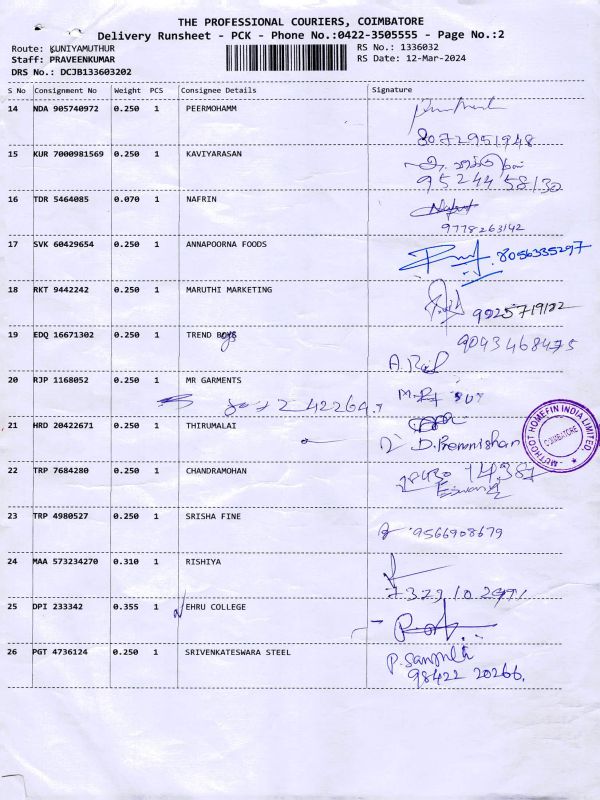 THE PROFESSIONAL COURIERS, COIMBATORE
Delivery Runsheet - PCK - Phone No.:0422-3505555 - Page No.:2
Route: KUNIYAMUTHUR
RS No.: 1336032
Staff: PRAVEENKUMAR
RS Date: 12-Mar-2024
DRS No.: DCJB133603202
S No Consignment No Weight PCS Consignee Details Signature
14 NDA 905740972 0.250 1 PEERMOHAMM
8072951948
15 KUR 7000981569 0.250 1 KAVIYARASAN
95244 58130
16 TDR 5464085 0.070 1 NAFRIN
9778263142
17 SVK 60429654 0.250 1 ANNAPOORNA FOODS
8056335297
18 RKT 9442242 0.250 1 MARUTHI MARKETING
19 EDQ 16671302 0.250 1 TREND BOYS
9043468475
20 RJP 1168052 0.250 1 MR GARMENTS
21 HRD 20422671 0.250 1 THIRUMALAI
MUTHOOT HOMEFIN INDIA LIMITED.
COIMBATORE
22 TRP 7684280 0.250 1 CHANDRAMOHAN
23 TRP 4980527 0.250 1 SRISHA FINE
9566908679
24 MAA 573234270 0.310 1 RISHIYA
25 DPI 233342 0.355 1 NEHRU COLLEGE
26 PGT 4736124 0.250 1 SRIVENKATESWARA STEEL
98422 20266.